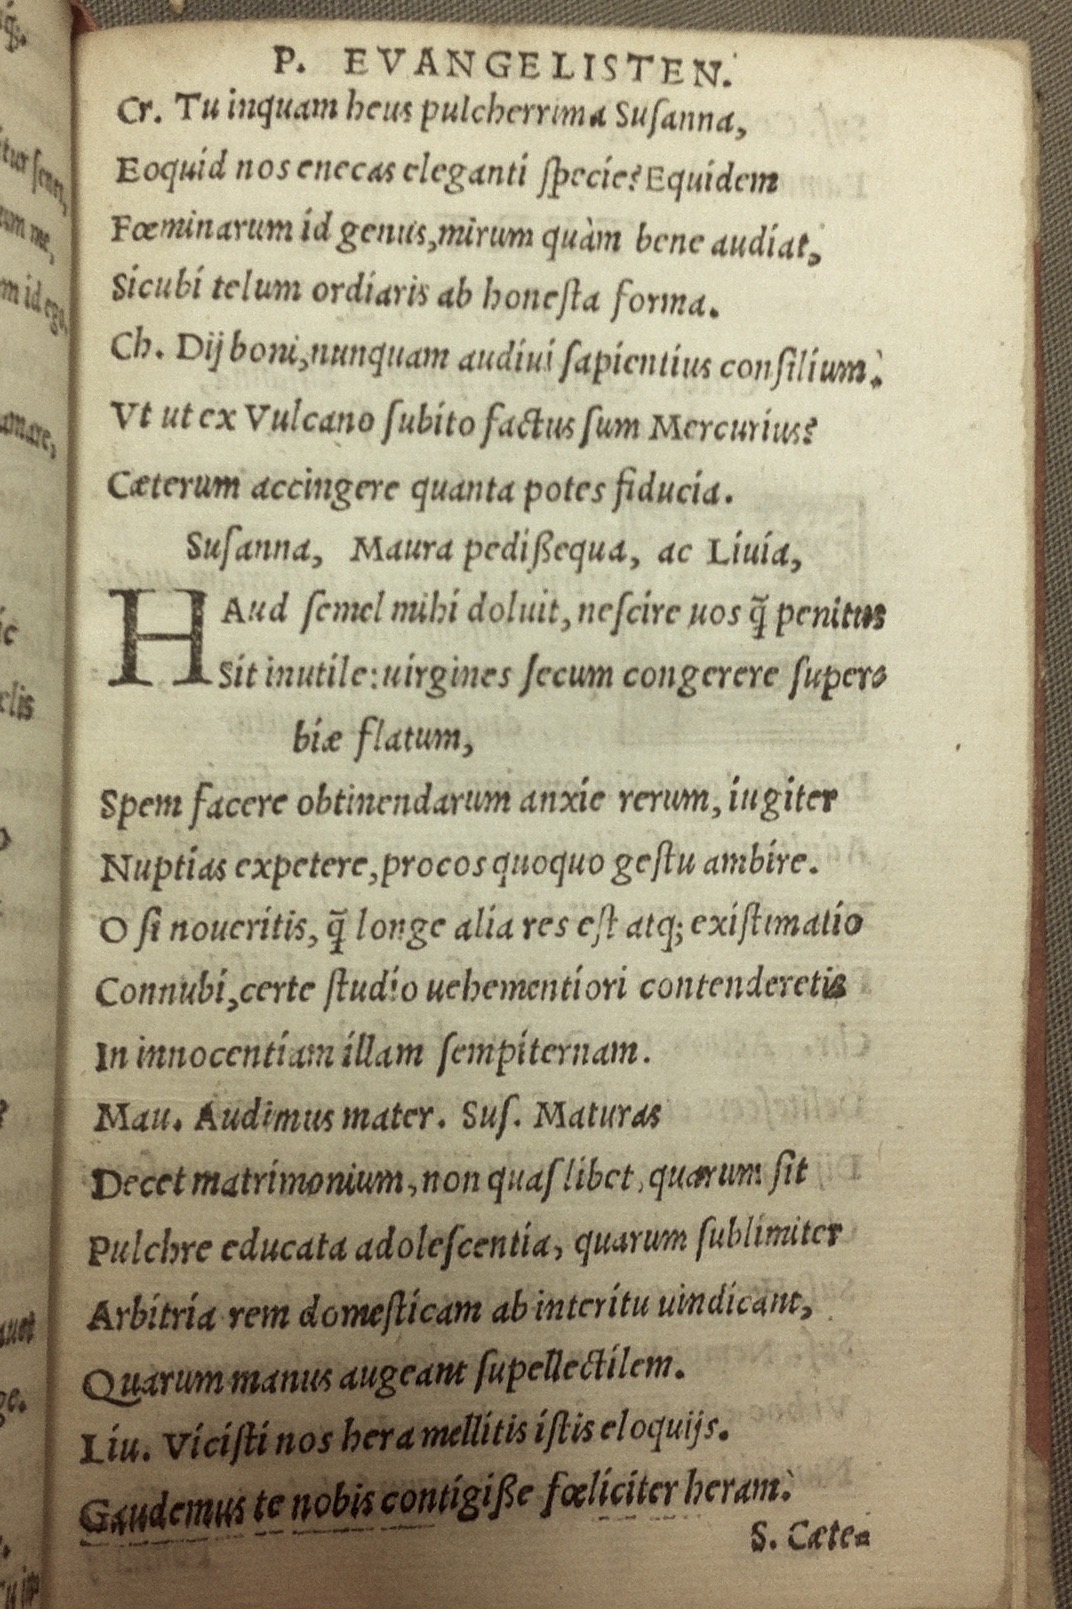 P. EVANGELISTEN.
Cr. Tu inquam heus pulcherrima Suſanna,
Eoquid nos enecas eleganti ſpecie? Equidem
Fœminarum id genus, mirum quàm bene audiat,
Sicubi telum ordiaris ab honeſta forma.
Ch. Dij boni, nunquam audiui ſapientius conſilium.
Vt ut ex Vulcano ſubito factus ſum Mercurius?
Cæterum accingere quanta potes fiducia.
Suſanna, Maura pedißequa, ac Liuia,
HAud ſemel mihi doluit, neſcire uos q̃ penitus
Sit inutile: uirgines ſecum congerere ſuper⸗
biæ flatum,
Spem facere obtinendarum anxie rerum, iugiter
Nuptias expetere, procos quoquo geſtu ambire.
O ſi noueritis, q̃ longe alia res eſt atq; exiſtimatio
Connubi, certe ſtudio uehementiori contenderetis
In innocentiam illam ſempiternam.
Mau. Audimus mater. Suſ. Maturas
Decet matrimonium, non quaſlibet, quarum ſit
Pulchre educata adoleſcentia, quarum ſublimiter
Arbitria rem domeſticam ab interitu uindicant,
Quarum manus augeant ſupellectilem.
Liu. Viciſti nos hera mellitis iſtis eloquijs.
Gaudemus te nobis contigiße fœliciter heram.
S. Cæte⸗